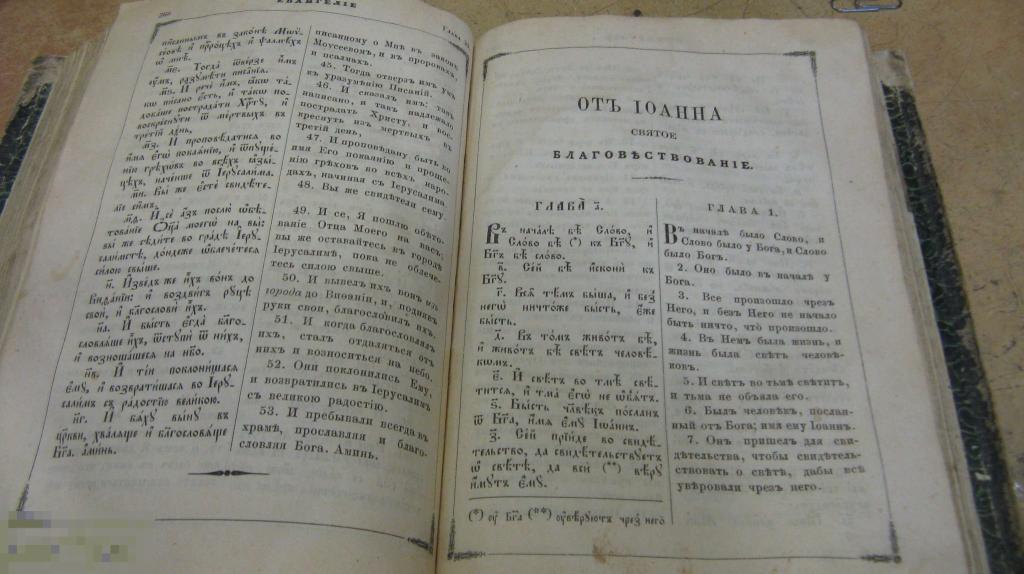 260
ЕВАНГЕЛІЕ
писаннымъ въ законѣ Мѡѵ-
сеовѣ и҆ прⷪ҇роцѣхъ и҆ ѱалмѣхъ
ѡ҆ мнѣ.
м҃е. Тогда ѿверзе и҆̀мъ
ᲂу҆мъ, разꙋмѣти писанїѧ.
м҃ѕ. И҆ рече и҆̀мъ, ꙗ҆́кѡ та́-
кѡ писано є҆́сть, и҆ та́кѡ по-
добаше пострадати Хрⷭ҇тꙋ, и҆
воскреснꙋти ѿ мертвыхъ въ
третїй день,
м҃з. И҆ проповѣдатисѧ во
и҆́мѧ є҆гѡ̀ покаѧнїю, и҆ ѿпꙋще-
нїю грѣхѡвъ во всѣхъ ꙗ҆зы-
цѣхъ, наченше ѿ І҆ерꙋсалима.
м҃и. Вы же є҆стѐ свидѣте-
лїе си̑мъ.
м҃ѳ. И҆ сѐ а҆́зъ послю̀ ѡ҆бѣ-
тованїе Ѻ҆ц҃а̀ моегѡ̀ на вы̀:
вы́ же сѣди́те во градѣ І҆ерꙋ-
сали́мстѣ, до́ндеже ѡ҆блече́тесѧ
си́лою свы́ше.
н҃. И҆зве́дъ же и҆̀хъ во́нъ до
Виѳа́нїи: и҆ воздви́гъ рꙋ́цѣ
свои̑, и҆ благословѝ и҆̀хъ.
н҃а. И҆ бы́сть є҆гда̀ благо-
словлѧ́ше и҆̀хъ, ѿстꙋпѝ ѿ ни́хъ,
и҆ возноша́шесѧ на нб҃о.
н҃в. И҆ ті́и поклони́шасѧ
є҆мꙋ̀, и҆ возврати́шасѧ во І҆ерꙋ-
сали́мъ съ ра́достїю вели́кою.
н҃г. И҆ бѧ́хꙋ вы́нꙋ въ
цр҃кви, хва́лѧще и҆ благословѧ́ще
Бг҃а. а҆ми́нь.
писанному о Мнѣ въ законѣ
Моусеевомъ, и въ пророкахъ,
и псалмахъ.
45. Тогда отверзъ имъ умъ
къ уразумѣнію Писаній.
46. И сказалъ имъ: такъ
написано, и такъ надлежало
пострадать Христу, и вос-
креснуть изъ мертвыхъ въ
третій день,
47. И проповѣдану быть во
имя Его покаянію и проще-
нію грѣховъ во всѣхъ наро-
дахъ, начиная съ Іерусалима.
48. Вы же свидѣтели сему.
49. И се, Я пошлю обѣто-
ваніе Отца Моего на васъ;
вы же оставайтесь въ городѣ
Іерусалимѣ, пока не облече-
тесь силою свыше.
50. И вывелъ ихъ вонъ изъ
города до Виѳаніи, и, поднявъ
руки свои, благословилъ ихъ.
51. И когда благословлялъ
ихъ, сталъ отдаляться отъ
нихъ и возноситься на небо.
52. Они поклонились Ему,
и возвратились въ Іерусалимъ
съ великою радостію.
53. И пребывали всегда въ
храмѣ, прославляя и благо-
словляя Бога. Аминь.
ОТЪ ІОАННА
СВЯТОЕ
БЛАГОВѢСТВОВАНІЕ.
ГЛАВА̀ а҃.
Въ нача́лѣ бѣ̀ Сло́во, и҆
Сло́во бѣ̀ (*) къ Бг҃ꙋ, и҆
Бг҃ъ бѣ̀ сло́во.
в҃. Се́й бѣ̀ и҆сконѝ къ
Бг҃ꙋ.
г҃. Всѧ̑ тѣ́мъ бы́ша, и҆ без̾
негѡ̀ ничто́же бы́сть, є҆́же
бы́сть.
д҃. Въ то́мъ живо́тъ бѣ̀,
и҆ живо́тъ бѣ̀ свѣ́тъ человѣ́-
кѡмъ.
є҃. И҆ свѣ́тъ во тмѣ̀ свѣ́-
титсѧ, и҆ тма̀ є҆гѡ̀ не ѡ҆б̾ѧ́тъ.
ѕ҃. Бы́сть чл҃вѣ́къ по́сланъ
ѿ Бг҃а, и҆́мѧ є҆мꙋ̀ І҆ѡа́ннъ.
з҃. Се́й прїи́де во свидѣ́-
тельство, да свидѣ́тельствꙋетъ
ѡ҆ свѣ́тѣ, да всѝ (**) вѣ́рꙋ
и҆́мꙋтъ є҆мꙋ̀.
(*) ᲂу҆ Бг҃а (**) ᲂу҆вѣ́рꙋютъ чрез̾ него̀
ГЛАВА 1.
Въ началѣ было Слово, и
Слово было у Бога, и Слово
было Богъ.
2. Оно было въ началѣ у
Бога.
3. Все произошло чрезъ
Него, и безъ Него не начало
быть ничто, что̀ произошло.
4. Въ Немъ была жизнь, и
жизнь была свѣтъ человѣ-
ковъ.
5. И свѣтъ во тьмѣ свѣтитъ,
и тьма не объяла его.
6. Былъ человѣкъ, послан-
ный отъ Бога; имя ему Іоаннъ.
7. Онъ пришелъ для сви-
дѣтельства, чтобы свидѣтель-
ствовать о свѣтѣ, дабы всѣ
увѣровали чрезъ него.